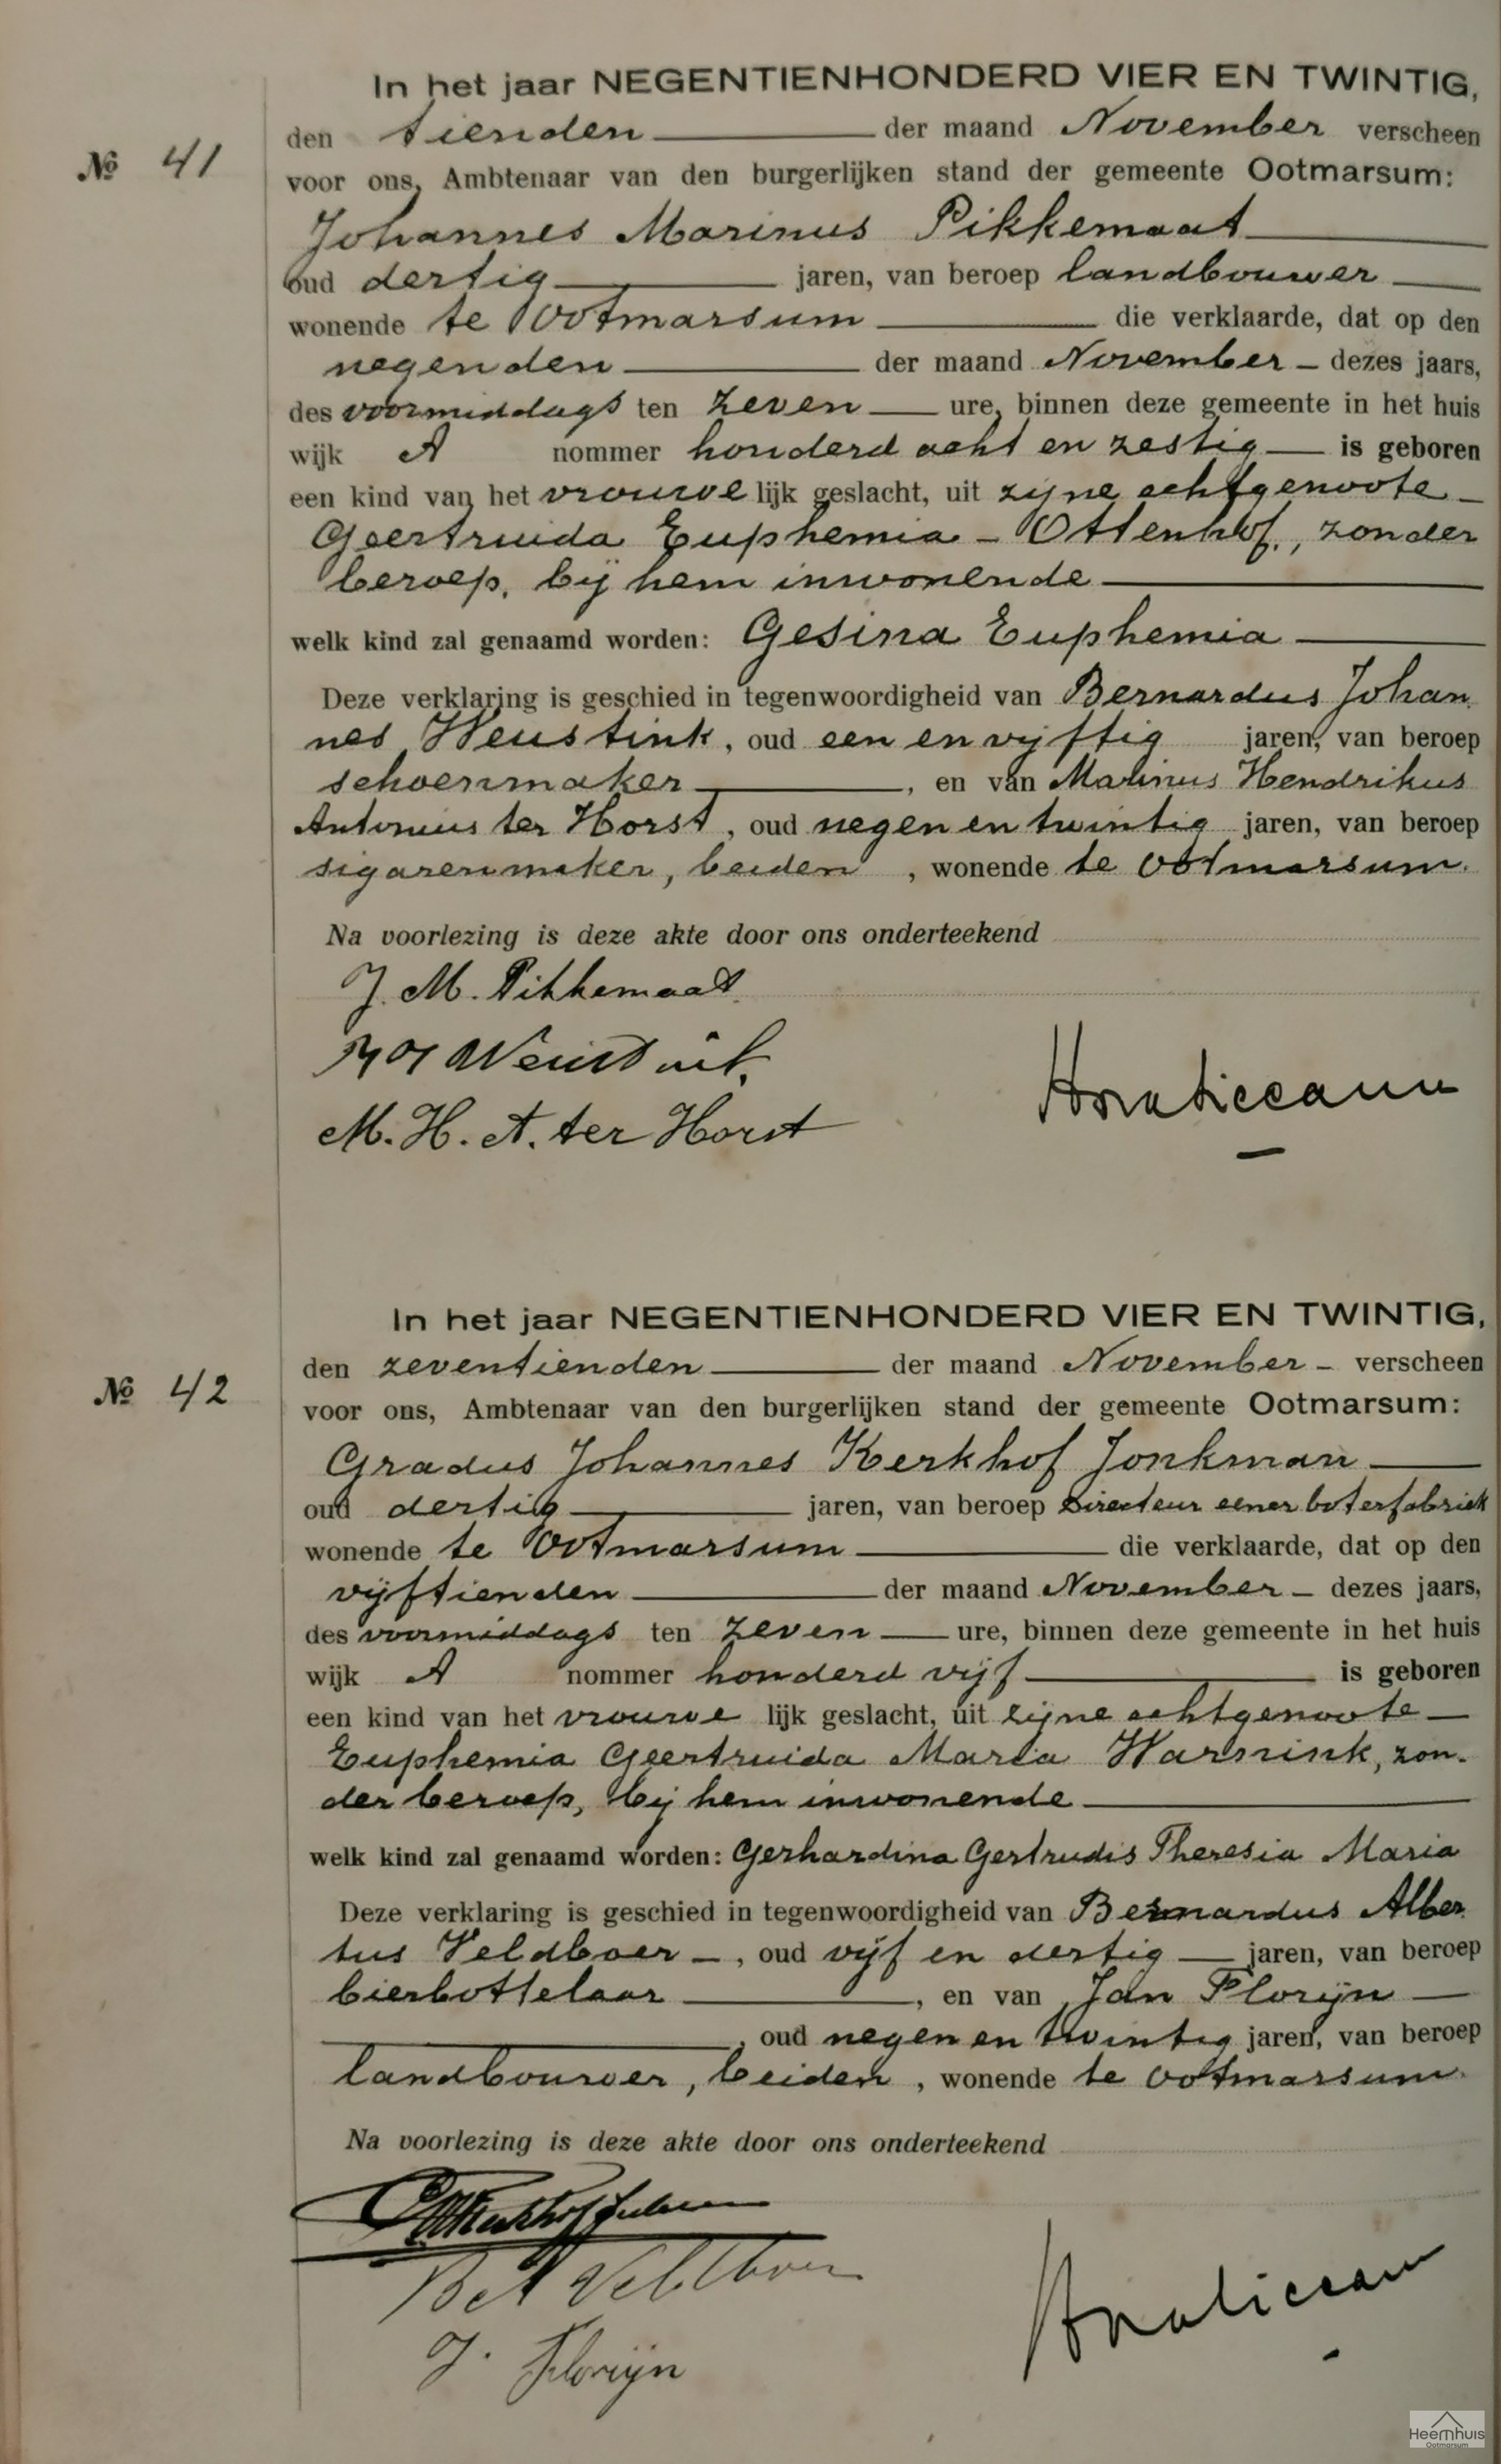 In het jaar NEGENTIENHONDERD VIER EN TWINTIG,
den tienden der maand November verscheen
№ 41
voor ons, Ambtenaar van den burgerlijken stand der gemeente Ootmarsum:
Johannes Marinus Pikkemaat
oud dertig jaren, van beroep landbouwer
wonende te Ootmarsum die verklaarde, dat op den
negenden der maand November – dezes jaars,
des voormiddags ten zeven ure, binnen deze gemeente in het huis
wijk A nommer honderd acht en zestig is geboren
een kind van het vrouwe lijk geslacht, uit zijne echtgenoote
Geertruida Euphemia – Ottenhof, zonder
beroep, bij hem inwonende
welk kind zal genaamd worden: Gesina Euphemia
Deze verklaring is geschied in tegenwoordigheid van Bernardus Johan
nes Weustink, oud een en vijftig jaren, van beroep
schoenmaker, en van Marinus Hendrikus
Antonius ter Horst, oud negen en twintig jaren, van beroep
sigarenmaker, beiden, wonende te Ootmarsum.
Na voorlezing is deze akte door ons onderteekend
J. M. Pikkemaat
Weustink
M. H. A. ter Horst
In het jaar NEGENTIENHONDERD VIER EN TWINTIG,
den zeventienden der maand November – verscheen
№ 42
voor ons, Ambtenaar van den burgerlijken stand der gemeente Ootmarsum:
Gradus Johannes Kerkhof Jonkman
oud dertig jaren, van beroep Directeur eener boterfabriek
wonende te Ootmarsum die verklaarde, dat op den
vijftienden der maand November – dezes jaars,
des voormiddags ten zeven ure, binnen deze gemeente in het huis
wijk A nommer honderd vijf is geboren
een kind van het vrouwe lijk geslacht, uit zijne echtgenoote
Euphemia Geertruida Maria Warsink, zon-
der beroep, bij hem inwonende
welk kind zal genaamd worden: Gerhardina Gertrudis Theresia Maria
Deze verklaring is geschied in tegenwoordigheid van Bernardus Alber
tus Veldboer –, oud vijf en dertig jaren, van beroep
bierbottelaar, en van Jan Florijn
, oud negen en twintig jaren, van beroep
landbouwer, beiden, wonende te Ootmarsum.
Na voorlezing is deze akte door ons onderteekend
Veldboer
J. Florijn
Heemhuis
Ootmarsum